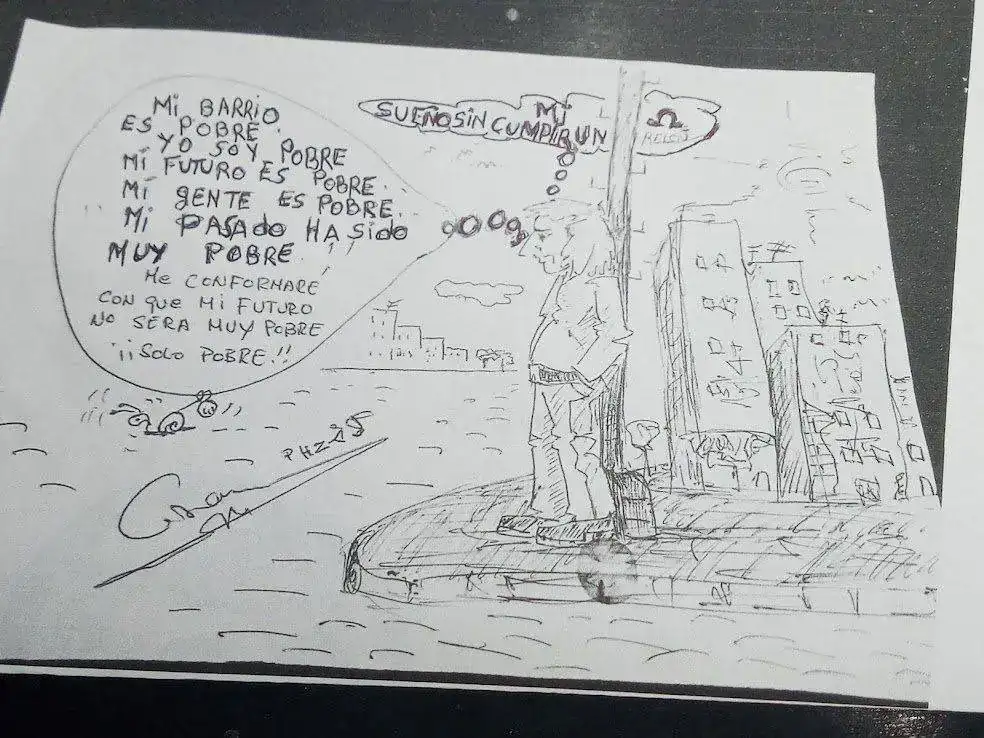 MI BARRIO
ES POBRE.
YO SOY POBRE
MI FUTURO ES POBRE.
MI GENTE ES POBRE.
MI PASADO HA SIDO
MUY POBRE.
ME CONFORMARÉ
CON QUE MI FUTURO
NO SERA MUY POBRE
¡¡SOLO POBRE!!
MI
SUEÑO SIN CUMPIR UN
RELOJ